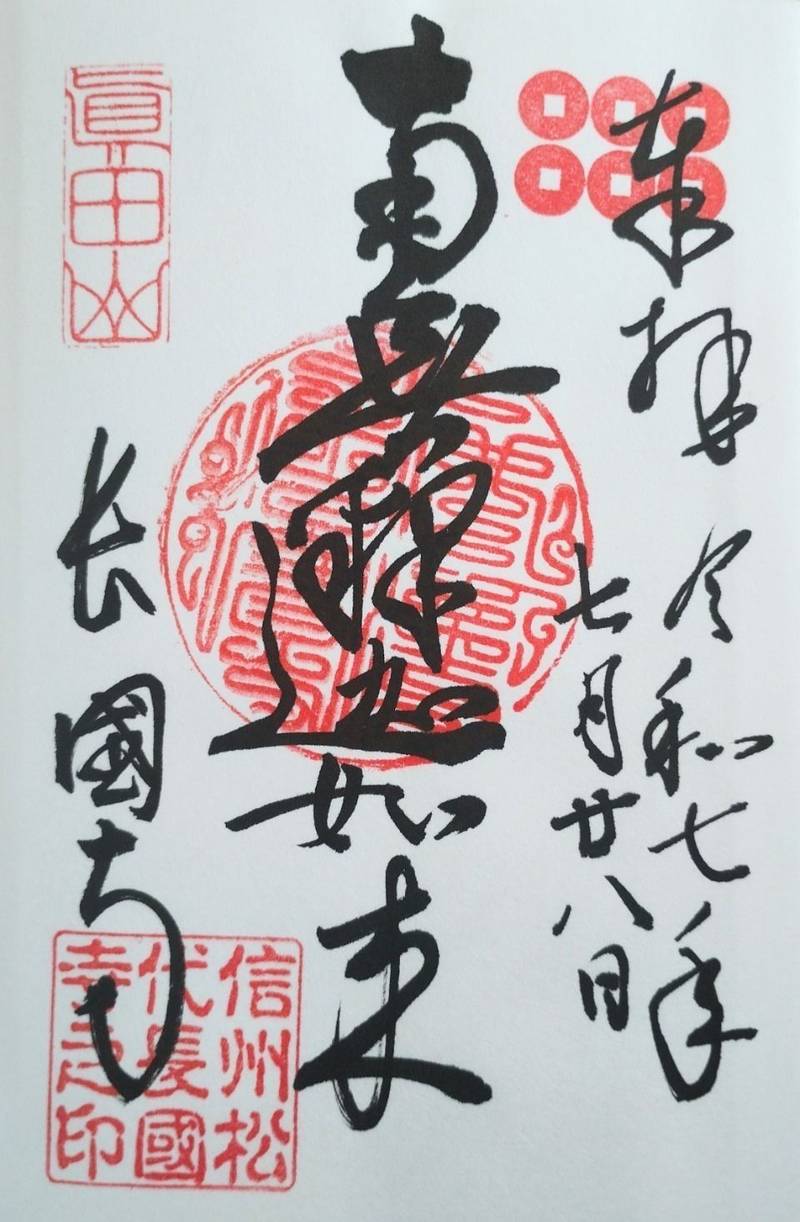 奉拝
令和七年
七月廿八日
南無釋迦如来
眞田山
長國寺
信州松
代長國
寺之印